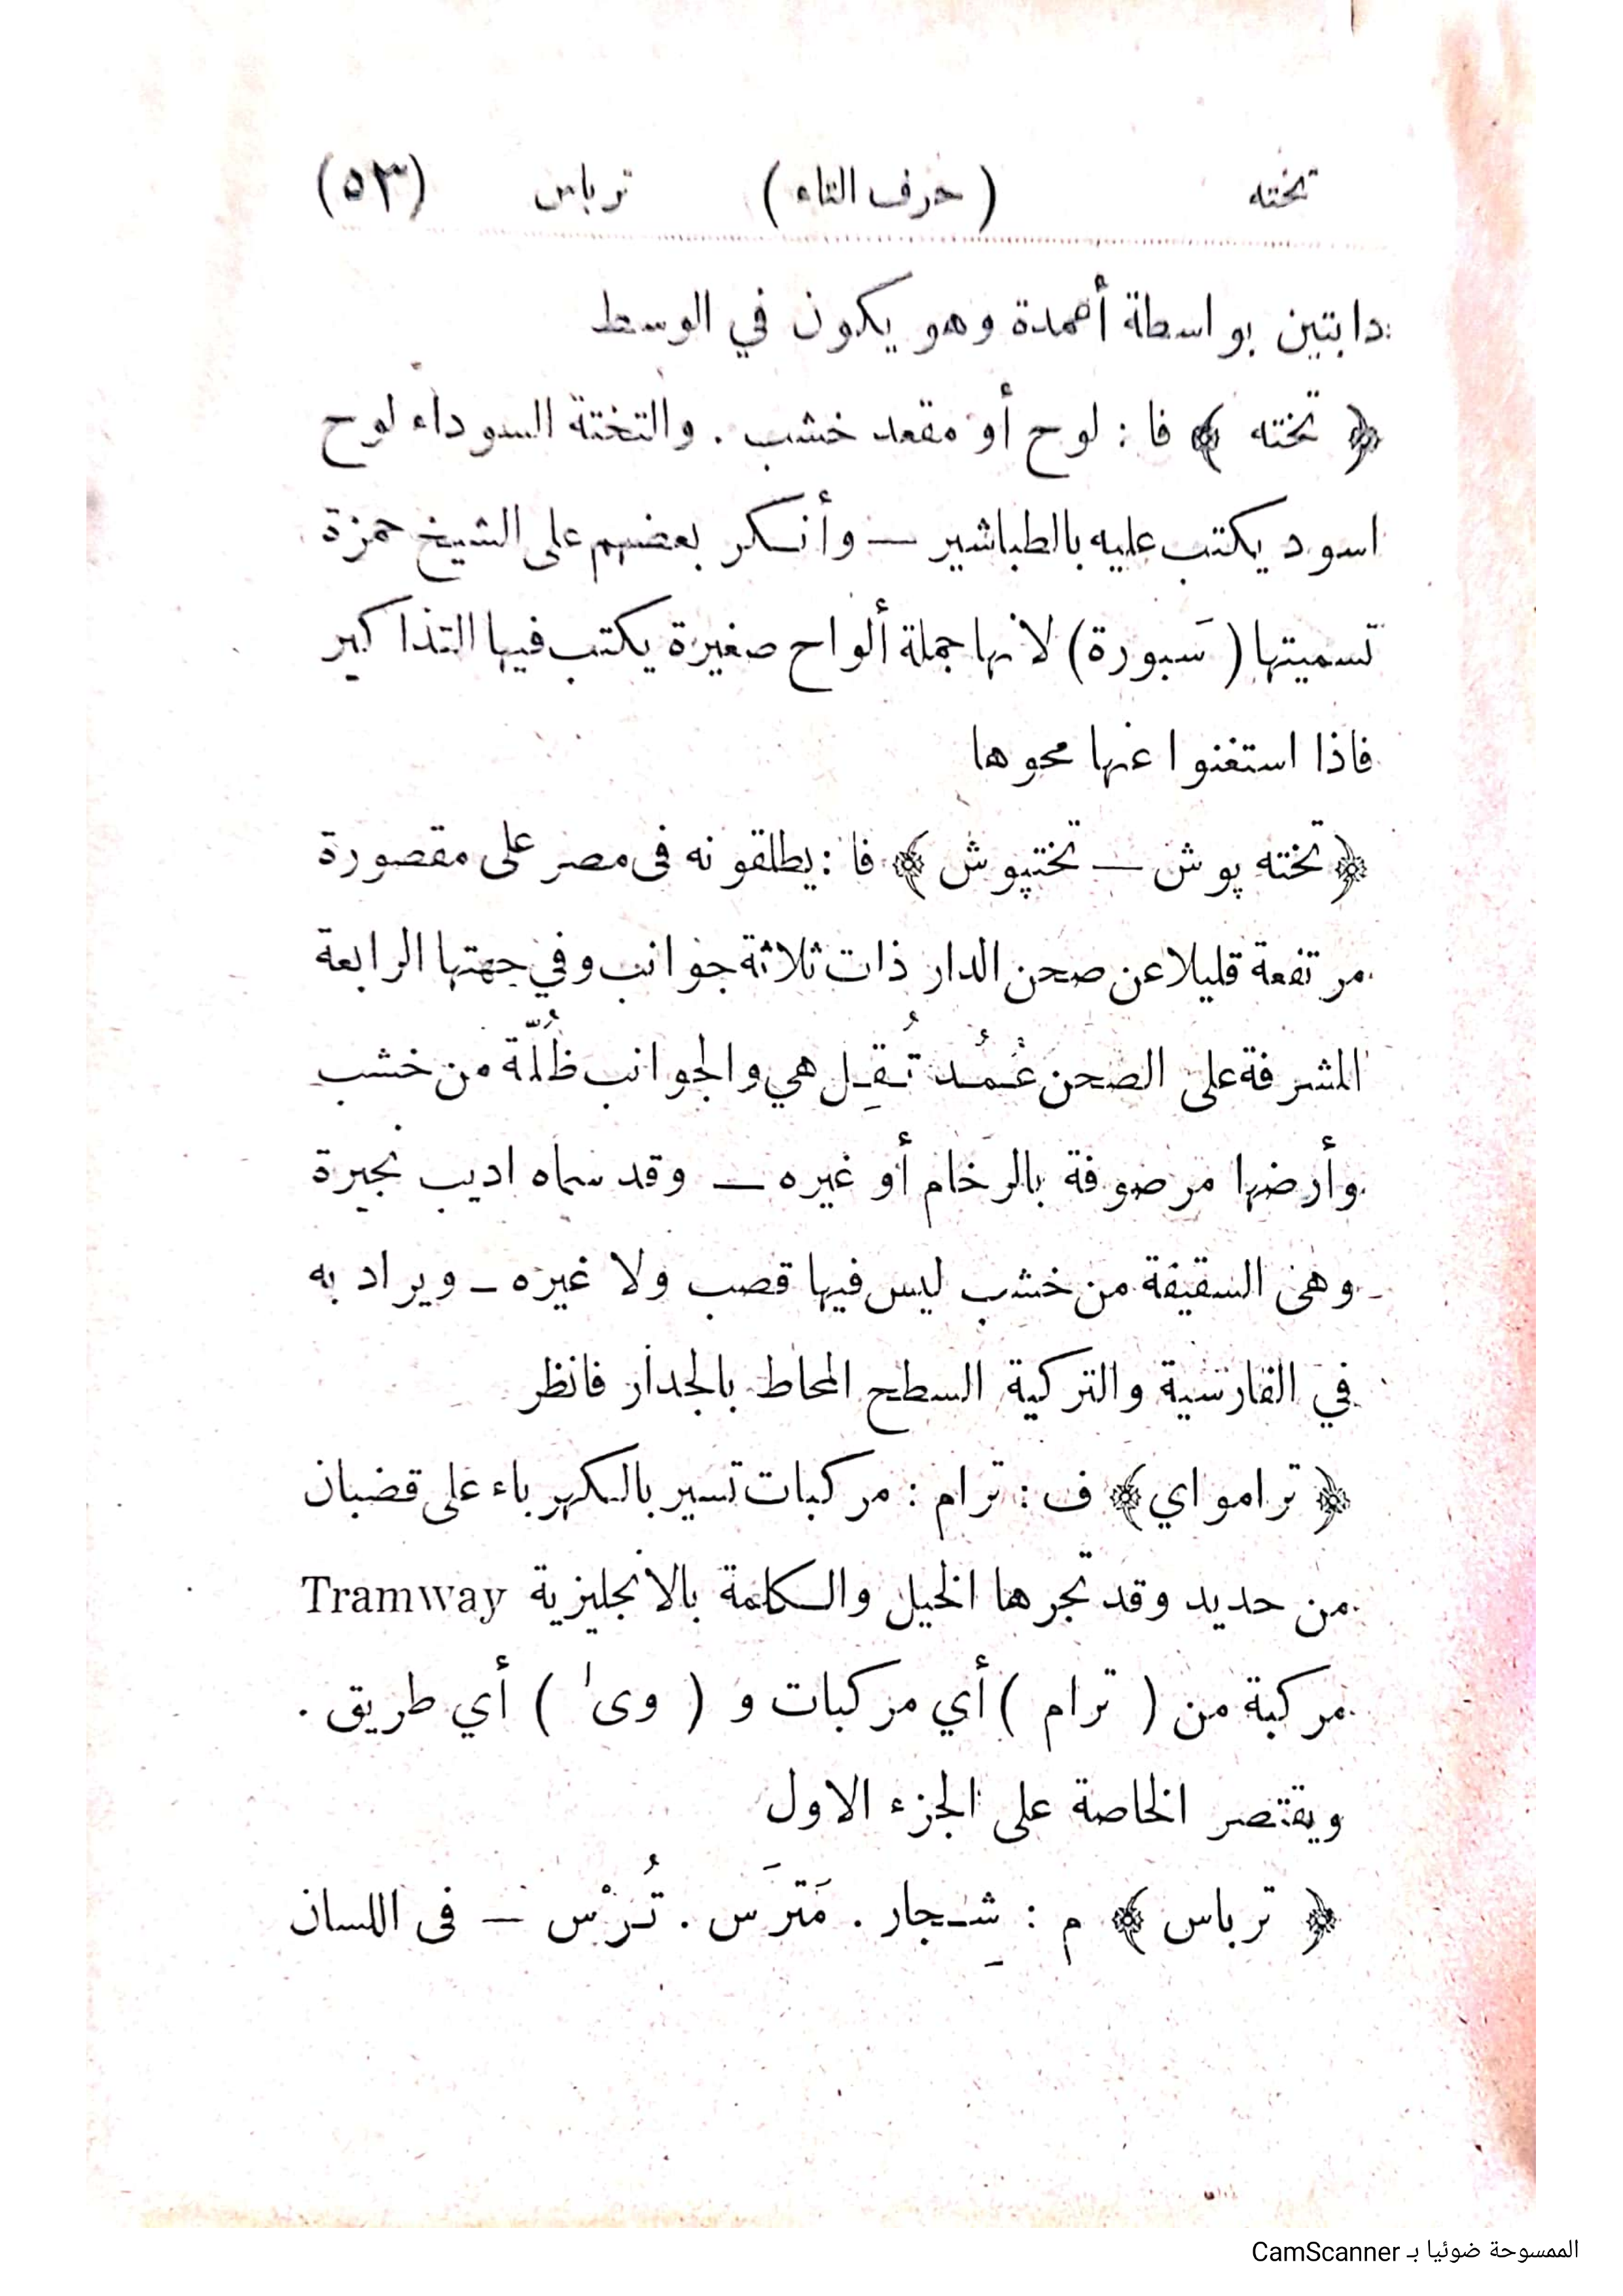 تخته ( حرف التاء ) ترباس (٥٣)
دابتين بواسطة أعمدة وهو يكون في الوسط
﴿ تخته ﴾ فا : لوح أو مقعد خشب . والتختة السوداء لوح
اسود يكتب عليه بالطباشير — وأنكر بعضهم على الشيخ حمزة
تسميتها ( سَبورة ) لانها جملة ألواح صغيرة يكتب فيها التذاكير
فاذا استغنوا عنها محوها
﴿ تخته پوش — تختپوش ﴾ فا : يطلقونه فى مصر على مقصورة
مرتفعة قليلا عن صحن الدار ذات ثلاثة جوانب وفي جهتها الرابعة
المشرفة على الصحن عُمُد تُقِل هي والجوانب ظُلّة من خشب
وأرضها مرصوفة بالرخام أو غيره — وقد سماه اديب نجيرة
وهى السقيفة من خشب ليس فيها قصب ولا غيره — ويراد به
في الفارسية والتركية السطح المحاط بالجدار فانظر
﴿ تراموای ﴾ ف : ترام : مركبات تسير بالكهرباء على قضبان
من حديد وقد تجرها الخيل والكلمة بالانجليزية Tramway
مركبة من ( ترام ) أي مركبات و ( وى ) أي طريق .
ويقتصر الخاصة على الجزء الاول
﴿ ترباس ﴾ م : شِجار . مَترَس . تُرْس — فى اللسان
الممسوحة ضوئيا بـ CamScanner